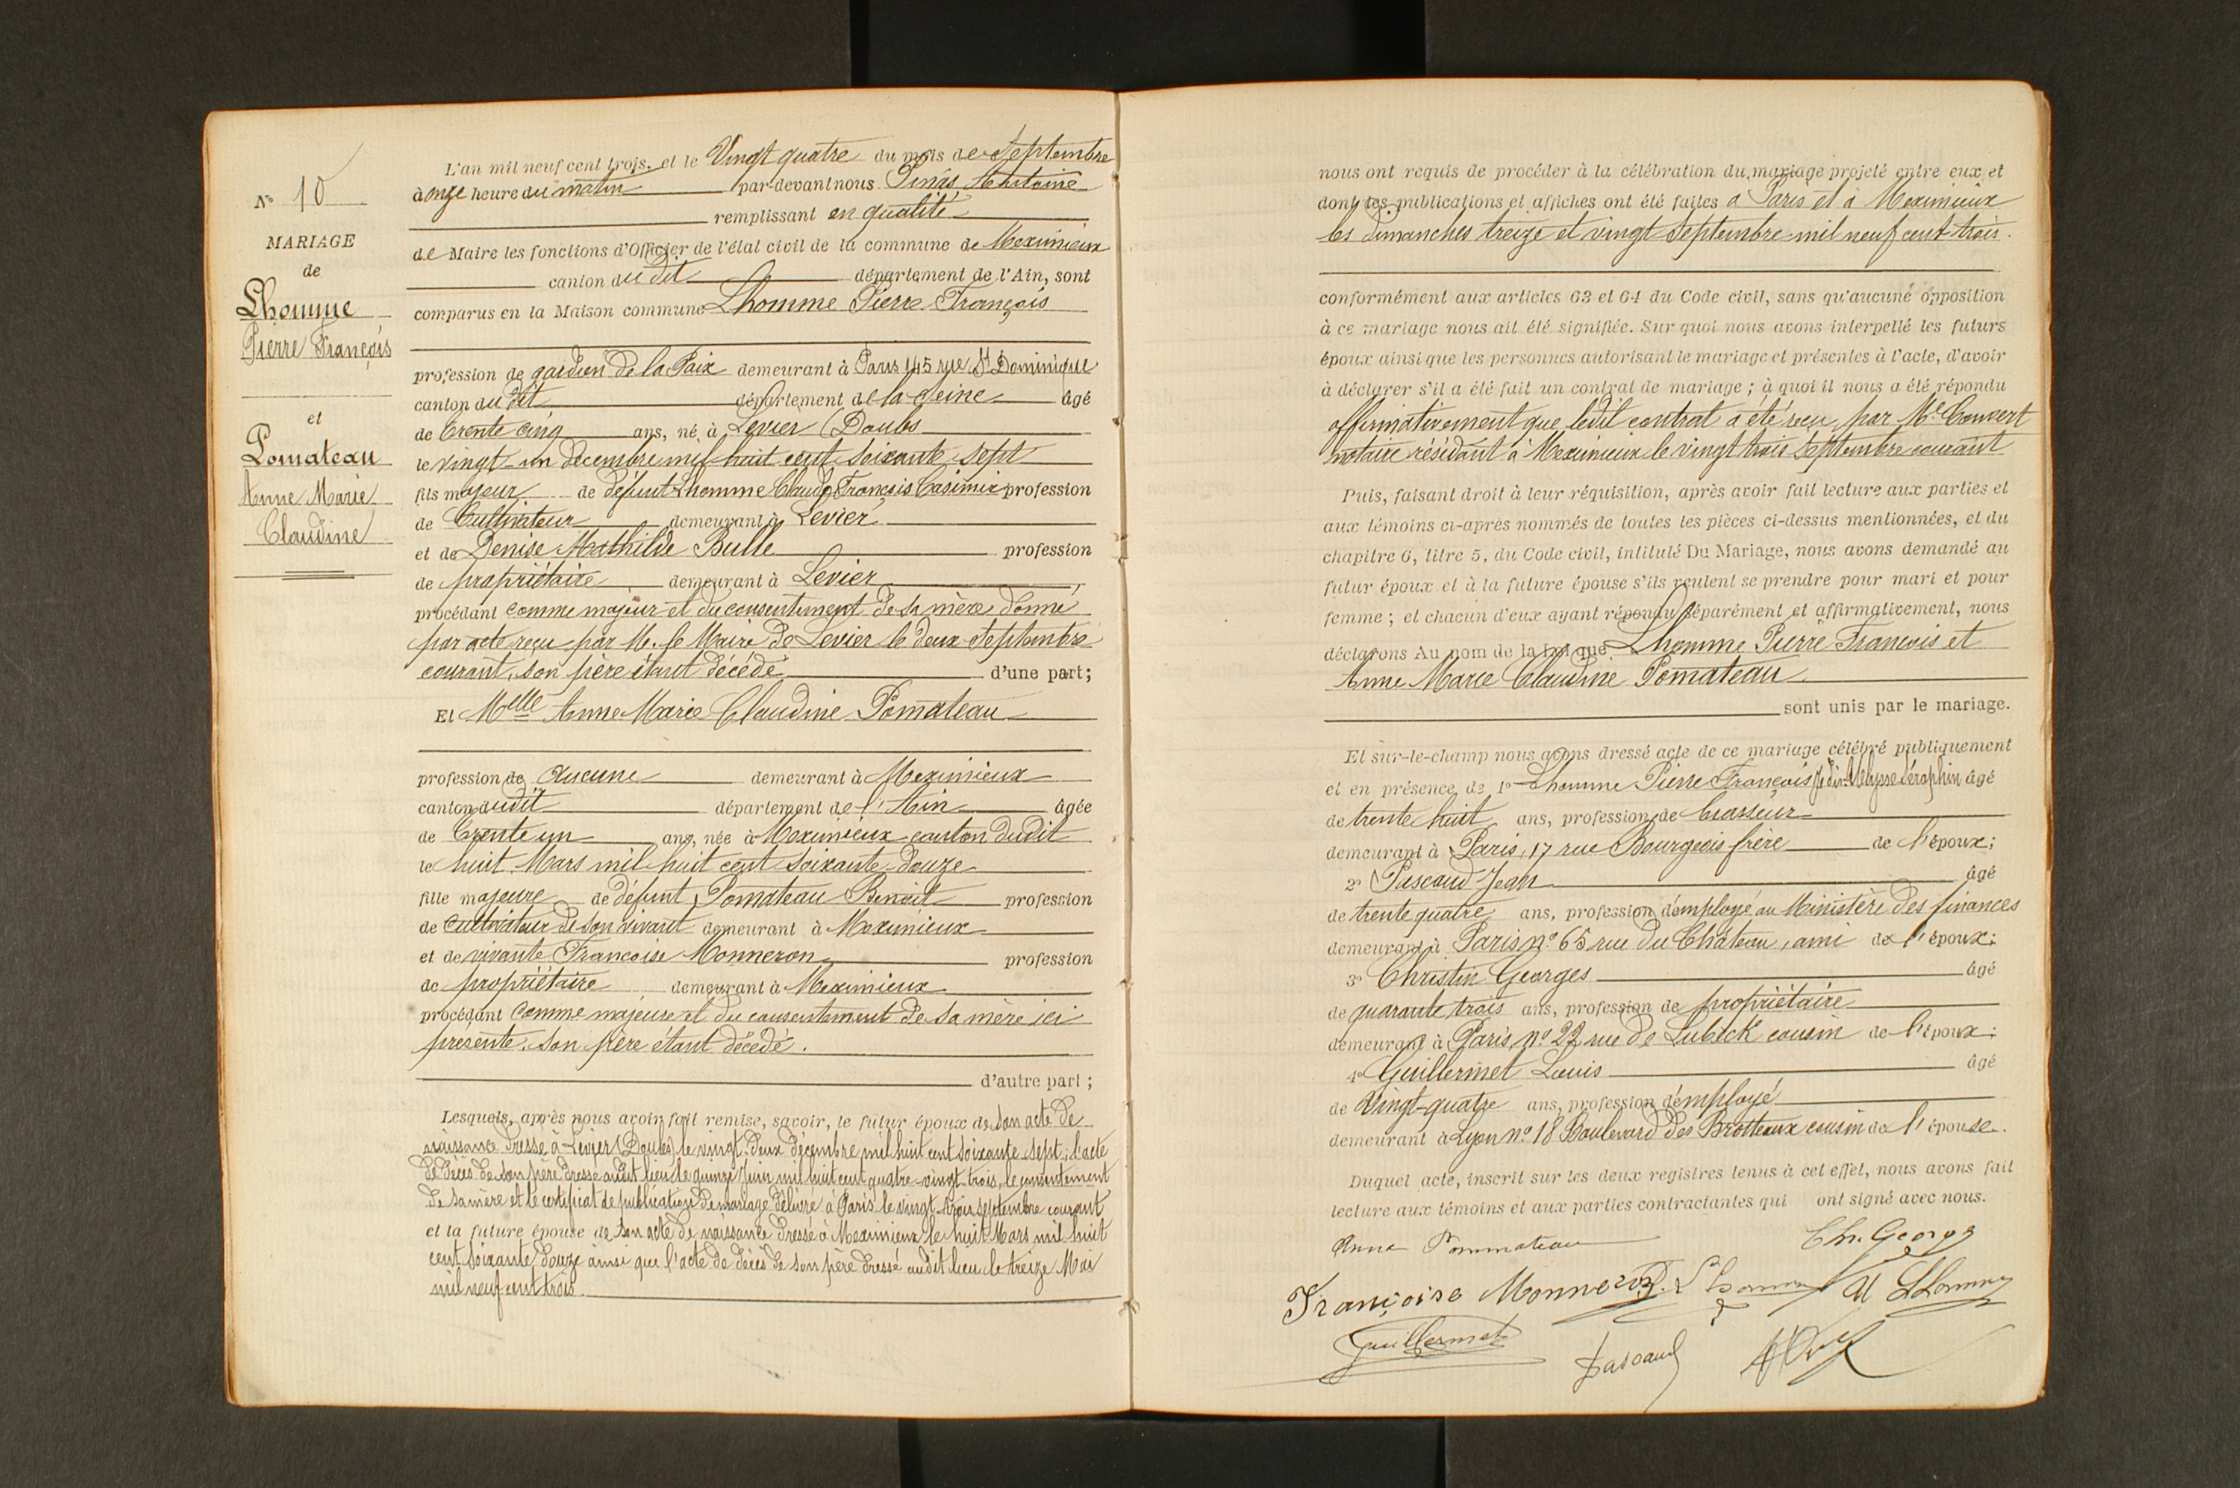 N° 10
MARIAGE
de
Lhomme
Pierre François
et
Pomateau
Anne Marie
Claudine
L'an mil neuf cent trois, et le Vingt quatre du mois de Septembre
à onze heure du matin par-devant nous Pinas Antoine
remplissant en qualité
de Maire les fonctions d'Officier de l'état civil de la commune de Meximieux
canton du dit département de l'Ain, sont
comparus en la Maison commune Lhomme Pierre François
profession de gardien de la Paix demeurant à Paris 145 rue St Dominique
canton du dit département de la Seine âgé
de trente cinq ans, né à Levier (Doubs
le vingt-un décembre mil huit cent soixante sept
fils majeur de défunt Lhomme Claude François Casimir profession
de Cultivateur demeurant à Levier
et de Denise Mathilde Bulle profession
de propriétaire demeurant à Levier
procédant comme majeur et du consentement de sa mère donné
par acte reçu par M. le Maire de Levier le deux Septembre
courant, son père étant décédé d'une part;
Et Melle Anne Marie Claudine Pomateau
profession de Aucune demeurant à Meximieux
canton dudit département de l'Ain âgée
de trente un ans, née à Meximieux canton dudit
le huit Mars mil huit cent soixante-douze
fille majeure de défunt Pomateau Benoit profession
de cultivateur de son vivant demeurant à Meximieux
et de vivante Françoise Monneron profession
de propriétaire demeurant à Meximieux
procédant comme majeure et du consentement de sa mère ici
présente, son père étant décédé.
d'autre part;
Lesquels, après nous avoir fait remise, savoir, le futur époux de son acte de
naissance dressé à Levier (Doubs) le vingt-deux décembre mil huit cent soixante sept; l'acte
de décès de son père dressé audit lieu le quinze Juin mil huit cent quatre-vingt-trois, le consentement
de sa mère et le certificat de publication de mariage délivré à Paris le vingt-trois septembre courant
et la future épouse de son acte de naissance dressé à Meximieux le huit Mars mil huit
cent soixante douze ainsi que l'acte de décès de son père dressé audit lieu le treize Mai
mil neuf cent trois.
nous ont requis de procéder à la célébration du mariage projeté entre eux, et
dont les publications et affiches ont été faites à Paris et à Meximieux
les dimanches treize et vingt Septembre mil neuf cent trois.
conformément aux articles 63 et 64 du Code civil, sans qu'aucune opposition
à ce mariage nous ait été signifiée. Sur quoi nous avons interpellé les futurs
époux ainsi que les personnes autorisant le mariage et présentes à l'acte, d'avoir
à déclarer s'il a été fait un contrat de mariage; à quoi il nous a été répondu
affirmativement que ledit contrat a été reçu par Me Convert
notaire résidant à Meximieux le vingt trois Septembre courant
Puis, faisant droit à leur réquisition, après avoir fait lecture aux parties et
aux témoins ci-après nommés de toutes les pièces ci-dessus mentionnées, et du
chapitre 6, titre 5, du Code civil, intitulé Du Mariage, nous avons demandé au
futur époux et à la future épouse s'ils veulent se prendre pour mari et pour
femme; et chacun d'eux ayant répondu séparément et affirmativement, nous
déclarons Au nom de la loi que Lhomme Pierre François et
Anne Marie Claudine Pomateau
sont unis par le mariage.
Et sur-le-champ nous avons dressé acte de ce mariage célébré publiquement
et en présence de 1° Lhomme Pierre François Ulysse Séraphin âgé
de trente huit ans, profession de brasseur
demeurant à Paris, 17 rue Bourgeois frère de l'époux;
2° Pascaud Jean âgé
de trente quatre ans, profession d'employé au Ministère des finances
demeurant à Paris n° 65 rue du Château, ami de l'époux;
3° Christin Georges âgé
de quarante trois ans, profession de propriétaire
demeurant à Paris, n° 22 rue de Lubeck cousin de l'époux;
4° Guillermet Louis âgé
de vingt-quatre ans, profession d'employé
demeurant à Lyon n° 18 Boulevard des Brotteaux cousin de l'épouse.
Duquel acte, inscrit sur les deux registres tenus à cet effet, nous avons fait
lecture aux témoins et aux parties contractantes qui ont signé avec nous.
Anna Pommateau Ch. Georges
Françoise Monneron P. Lhomme U Lhomme
Guillermet Pascaud